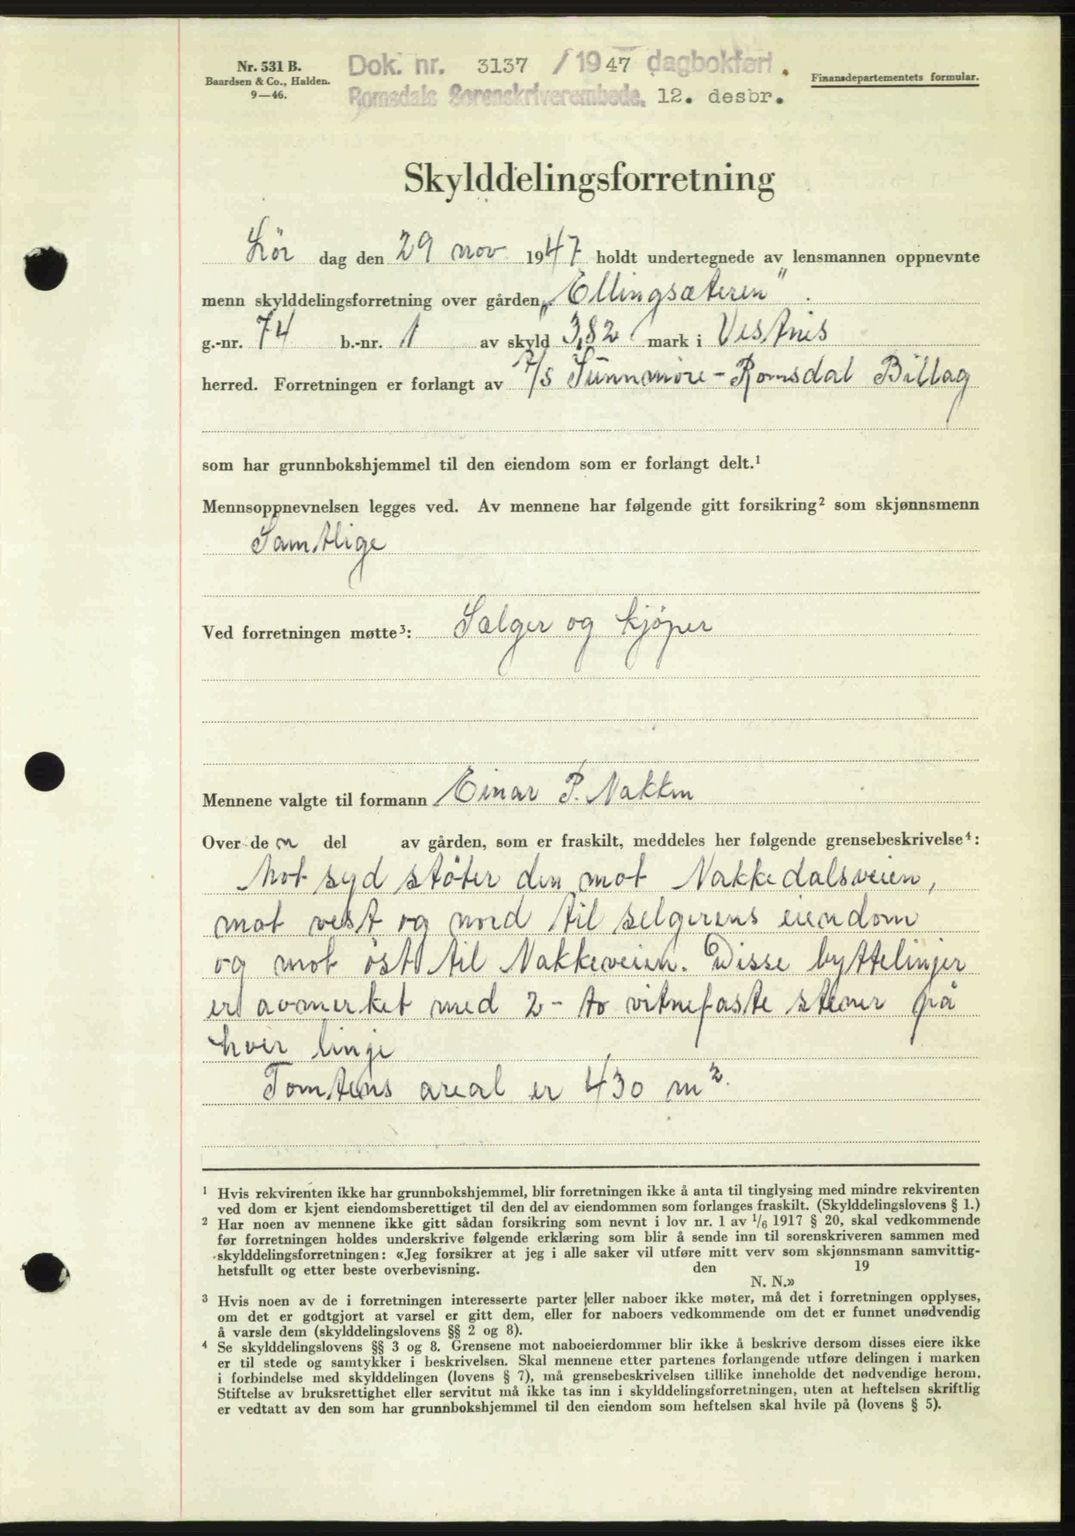 Nr. 531 B.
Baardsen & Co., Halden.
9—46.
Dok. nr. 3137 / 1947 dagbokført.
Romsdals Sorenskriverembede. 12. desbr.
Finansdepartementets formular.
Skylddelingsforretning
Lör dag den 29 nov 1947 holdt undertegnede av lensmannen oppnevnte
menn skylddelingsforretning over gården „Ellingsæteren".
g.-nr. 74 b.-nr. 1 av skyld 3,82 mark i Vestnes
herred. Forretningen er forlangt av A/S Sunnmöre-Romsdal Billag
som har grunnbokshjemmel til den eiendom som er forlangt delt.¹
Mennsoppnevnelsen legges ved. Av mennene har følgende gitt forsikring² som skjønnsmenn
Samtlige
Ved forretningen møtte³: Sælger og kjøper
Mennene valgte til formann Einar P. Nakken
Over de n del av gården, som er fraskilt, meddeles her følgende grensebeskrivelse⁴:
Mot syd støter den mot Nakkedalsveien,
mot vest og nord til selgerens eiendom
og mot öst til Nakkeveien. Disse byttelinjer
er avmerket med 2 - to vitnefaste stener på
hver linje
Tomtens areal er 430 m².
¹ Hvis rekvirenten ikke har grunnbokshjemmel, blir forretningen ikke å anta til tinglysing med mindre rekvirenten
ved dom er kjent eiendomsberettiget til den del av eiendommen som forlanges fraskilt. (Skylddelingslovens § 1.)
² Har noen av mennene ikke gitt sådan forsikring som nevnt i lov nr. 1 av 1/6 1917 § 20, skal vedkommende
før forretningen holdes underskrive følgende erklæring som blir å sende inn til sorenskriveren sammen med
skylddelingsforretningen: «Jeg forsikrer at jeg i alle saker vil utføre mitt verv som skjønnsmann samvittig-
hetsfullt og etter beste overbevisning. den 19
N. N.»
³ Hvis noen av de i forretningen interesserte parter eller naboer ikke møter, må det i forretningen opplyses,
om det er godtgjort at varsel er gitt dem, eller for naboers vedkommende om det er funnet unødvendig
å varsle dem (skylddelingslovens §§ 2 og 8).
⁴ Se skylddelingslovens §§ 3 og 8. Grensene mot naboeierdommer blir ikke å beskrive dersom disses eiere ikke
er til stede og samtykker i beskrivelsen. Skal mennene etter partenes forlangende utføre delingen i marken
i forbindelse med skylddelingen (lovens § 7), må grensebeskrivelsen tillike inneholde det nødvendige herom.
Stiftelse av bruksrettighet eller servitut må ikke tas inn i skylddelingsforretningen, uten at heftelsen skriftlig
er vedtatt av den som har grunnbokshjemmel til den eiendom som heftelsen skal hvile på (lovens § 5).